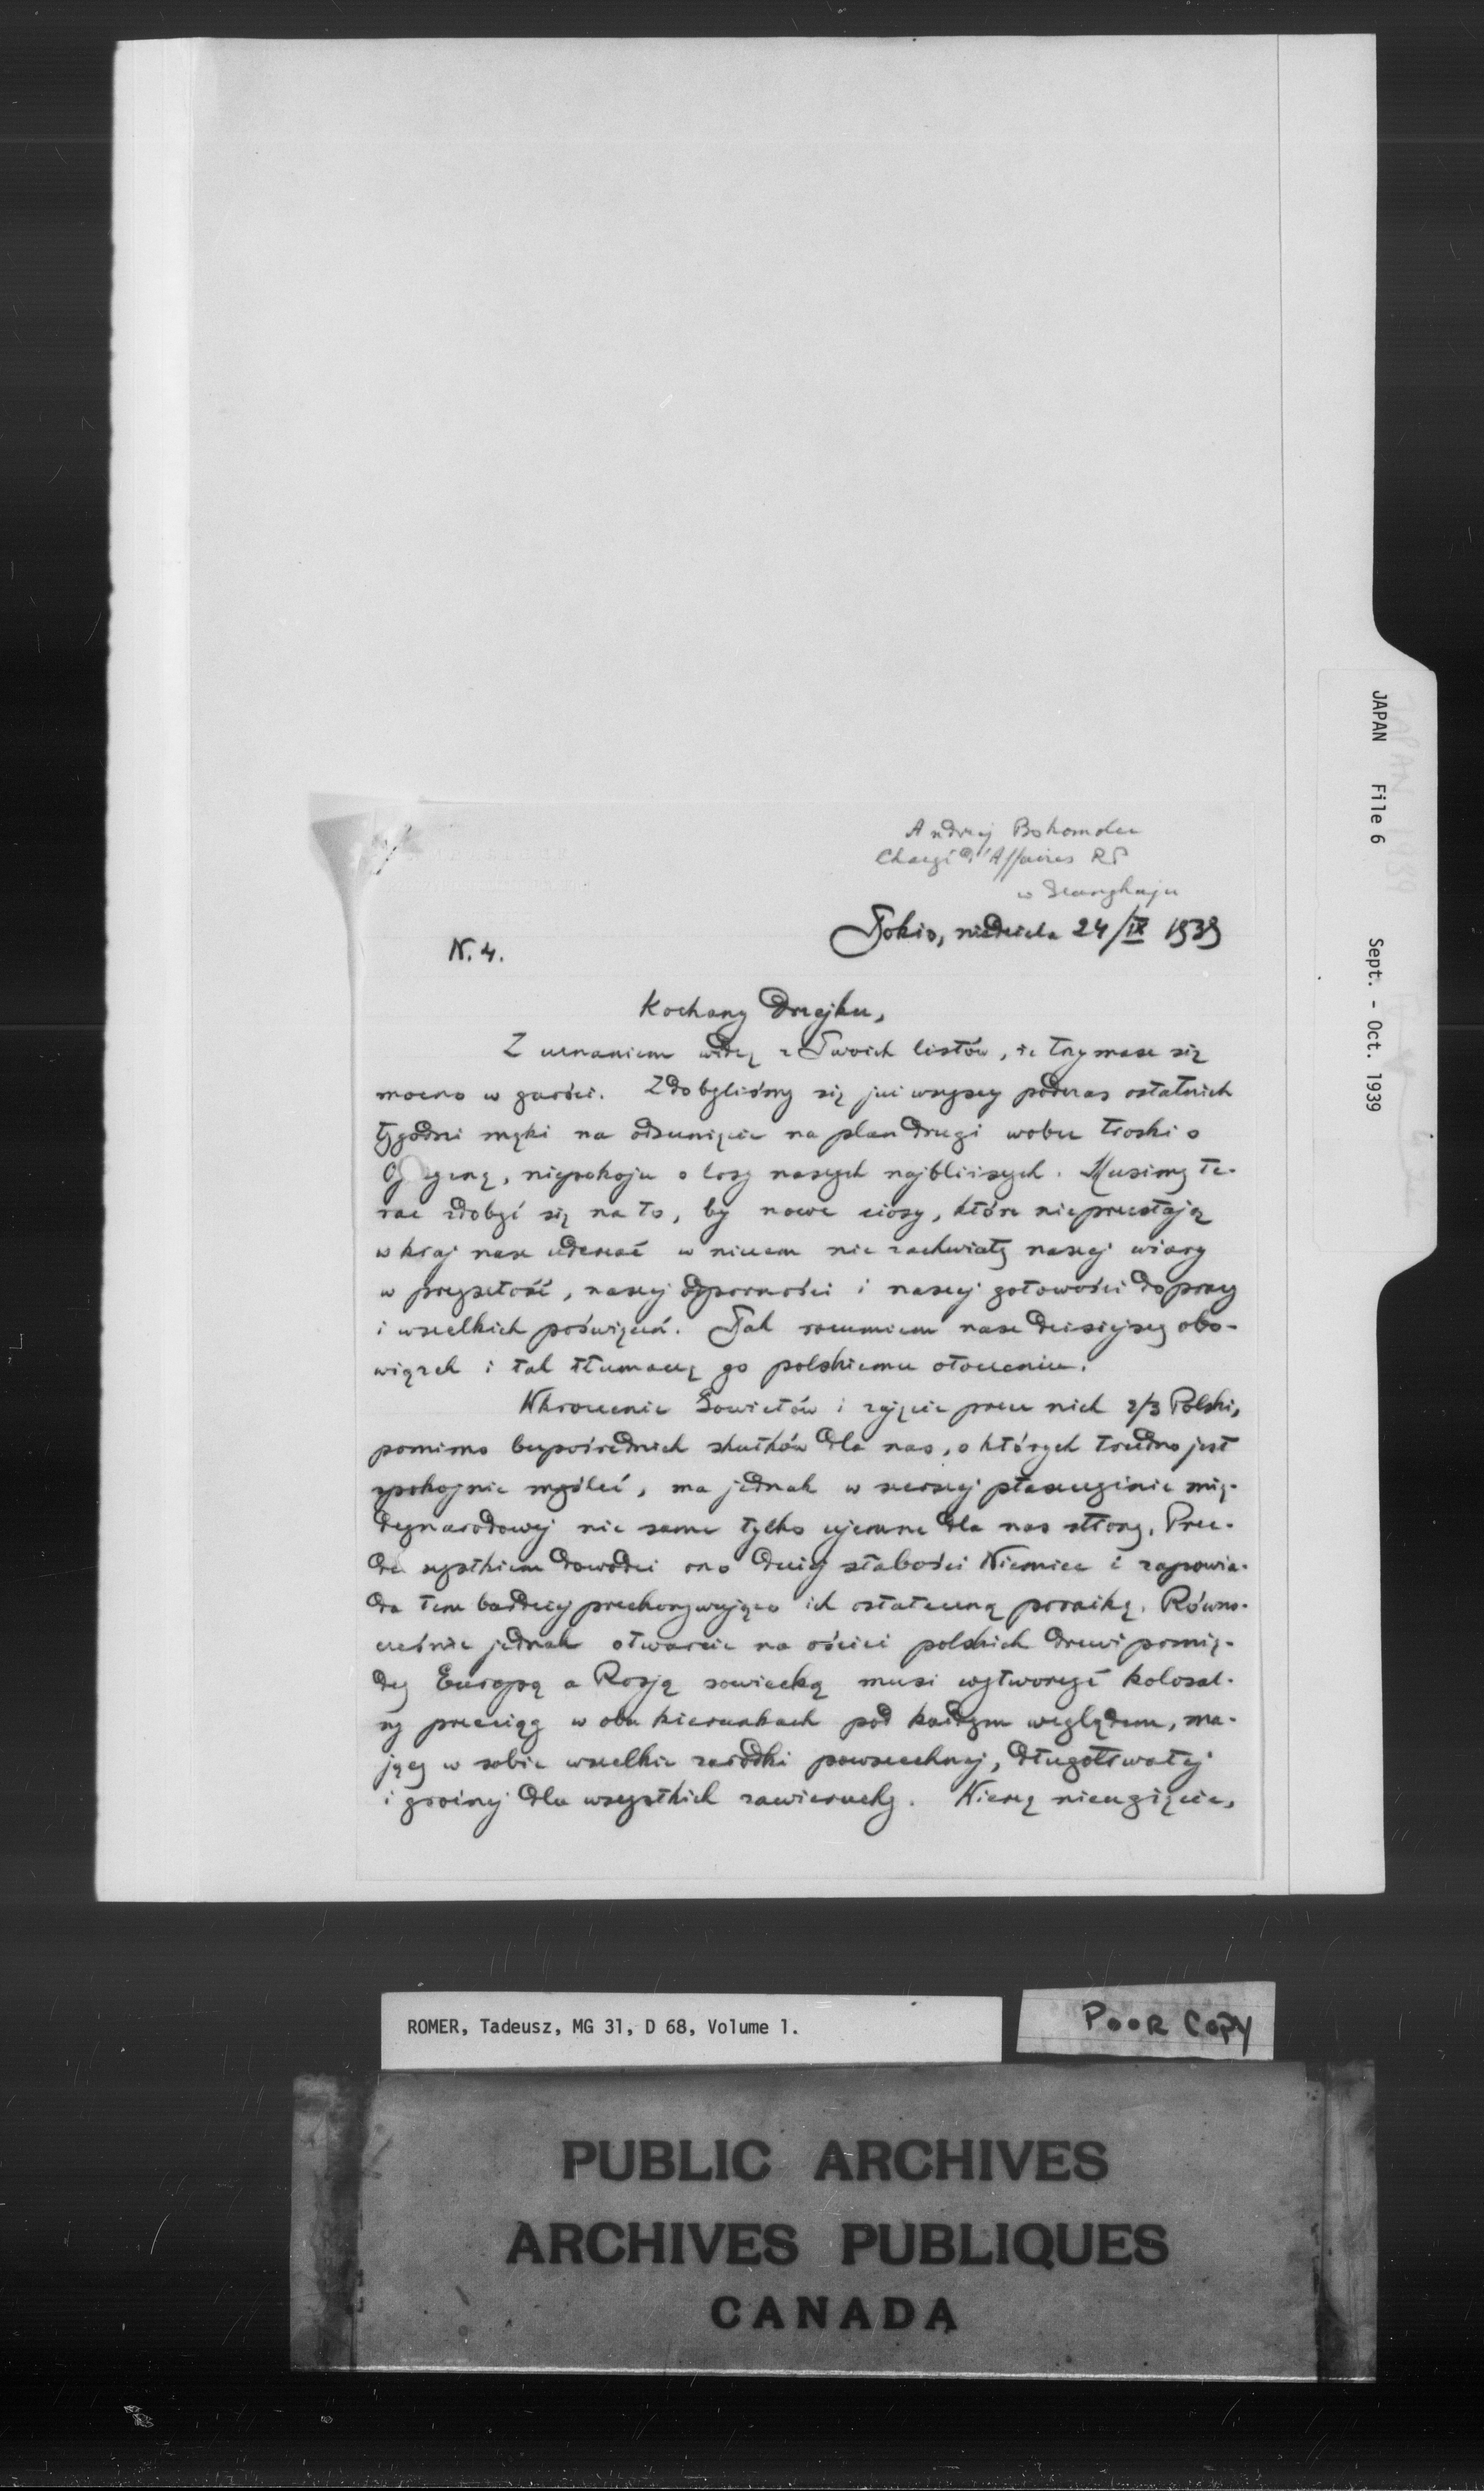 Andrzej Bohomolec
Chargé d'Affaires RP
w Szanghaju
Tokio, niedziela 24/IX 1939
N. 4.
Kochany Drzejku,
Z uznaniem widzę z Twoich listów, że trzymasz się
mocno w garści. Zdobyliśmy się już wszyscy podczas ostatnich
tygodni męki na odsunięcie na plan drugi wobec troski o
Ojczyznę, niepokoju o losy naszych najbliższych. Musimy te-
raz zdobyć się na to, by nowe ciosy, które nie przestają
w kraj nasz uderzać w niczem nie zachwiały naszej wiary
w przyszłość, naszej odporności i naszej gotowości do pracy
i wszelkich poświęceń. Tak rozumiem nasz dzisiejszy obo-
wiązek i tak tłumaczę go polskiemu otoczeniu.
Wkroczenie Sowietów i zajęcie przez nich 2/3 Polski,
pomimo bezpośrednich skutków dla nas, o których trudno jest
spokojnie myśleć, ma jednak w szerszej płaszczyźnie mię-
dzynarodowej nie same tylko ujemne dla nas strony. Prze-
de wszystkiem dowodzi ono dziś słabości Niemiec i zapowia-
da tem bardziej przekonywująco ich ostateczną porażkę. Równo-
cześnie jednak otwarcie na oścież polskich drzwi pomię-
dzy Europą a Rosją sowiecką musi wytworzyć kolosal-
ny przeciąg w obu kierunkach pod każdym względem, ma-
jący w sobie wszelkie zarodki powszechnej, długotrwałej
i groźnej dla wszystkich zawieruchy. Wierzę nieugięcie,
JAPAN File 6 Sept. - Oct. 1939
ROMER, Tadeusz, MG 31, D 68, Volume 1.
POOR COPY
PUBLIC ARCHIVES
ARCHIVES PUBLIQUES
CANADA